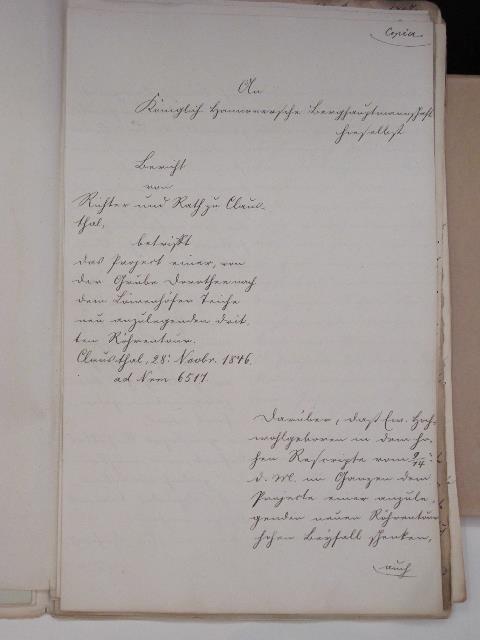 Copia
An
Königlich Hannoversche Berghauptmannschaft
hieselbst
Bericht
von
Richter und Rath zu Claus-
thal,
betrifft
das Project einer, von
der Grube Dorothee nach
dem Teiche
neu anzulegenden drit-
ten Röhrentour.
Clausthal, 28: Novbr. 1846.
ad Nrm 6517.
Darüber, daß Ew. Hoch-
wohlgeboren in dem ho-
hen Rescripte vom 9/14
d. M. im Ganzen dem
Projecte einer anzule-
genden neuen Röhrentour
hohen Beyfall schenken,
auch